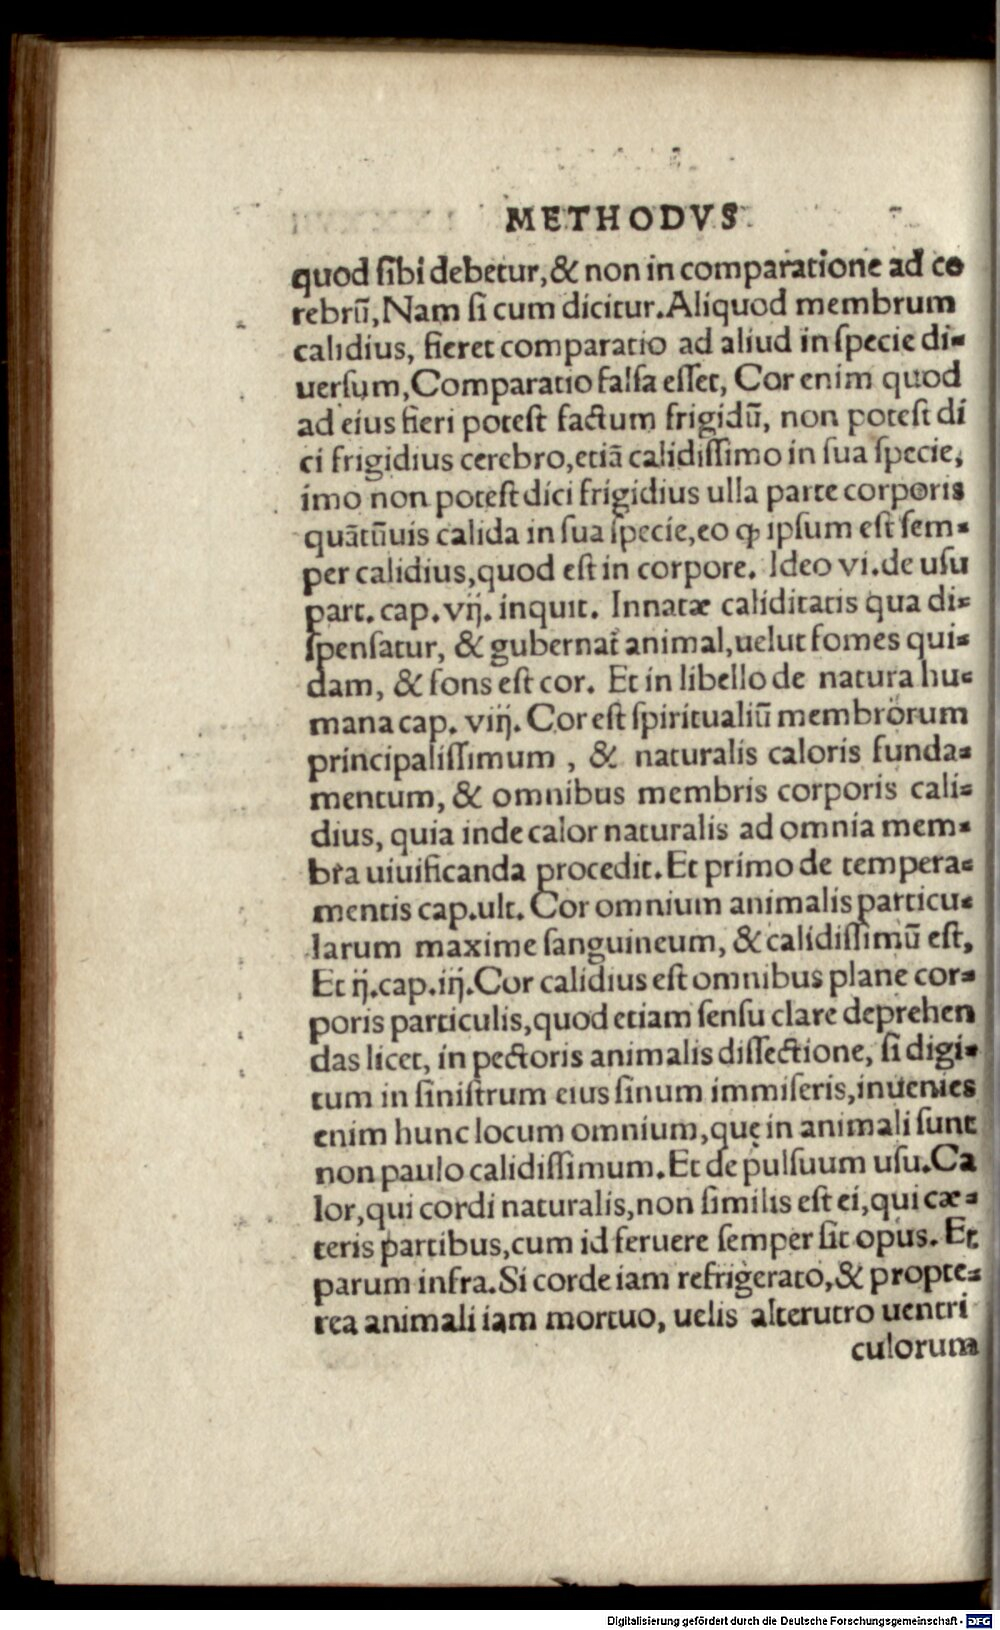 METHODVS
quod ſibi debetur, & non in comparatione ad ce
rebrũ, Nam ſi cum dicitur. Aliquod membrum
calidius, fieret comparatio ad aliud in ſpecie di-
uerſum, Comparatio falſa eſſet, Cor enim quod
ad eius fieri poteſt factum frigidũ, non poteſt di
ci frigidius cerebro, etiã calidiſſimo in ſua ſpecie,
imo non poteſt dici frigidius ulla parte corporis
quãtũuis calida in ſua ſpecie, eo ꝙ ipſum eſt ſem-
per calidius, quod eſt in corpore. Ideo vi. de uſu
part. cap. vij. inquit. Innatæ caliditatis qua di-
ſpenſatur, & gubernat animal, uelut fomes qui-
dam, & fons eſt cor. Et in libello de natura hu-
mana cap. viij. Cor eſt ſpiritualiũ membrorum
principaliſſimum , & naturalis caloris funda-
mentum, & omnibus membris corporis cali-
dius, quia inde calor naturalis ad omnia mem-
bra uiuificanda procedit. Et primo de tempera-
mentis cap. ult. Cor omnium animalis particu-
larum maxime ſanguineum, & calidiſſimũ eſt,
Et ij. cap. iij. Cor calidius eſt omnibus plane cor-
poris particulis, quod etiam ſenſu clare deprehen
das licet, in pectoris animalis diſſectione, ſi digi-
tum in ſiniſtrum eius ſinum immiſeris, inuenies
enim hunc locum omnium, quę in animali ſunt
non paulo calidiſſimum. Et de pulſuum uſu. Ca
lor, qui cordi naturalis, non ſimilis eſt ei, qui cæ-
teris partibus, cum id feruere ſemper ſit opus. Et
parum infra. Si corde iam refrigerato, & propte-
rea animali iam mortuo, uelis alterutro uentri
culorum
Digitalisierung gefördert durch die Deutsche Forschungsgemeinschaft - DFG